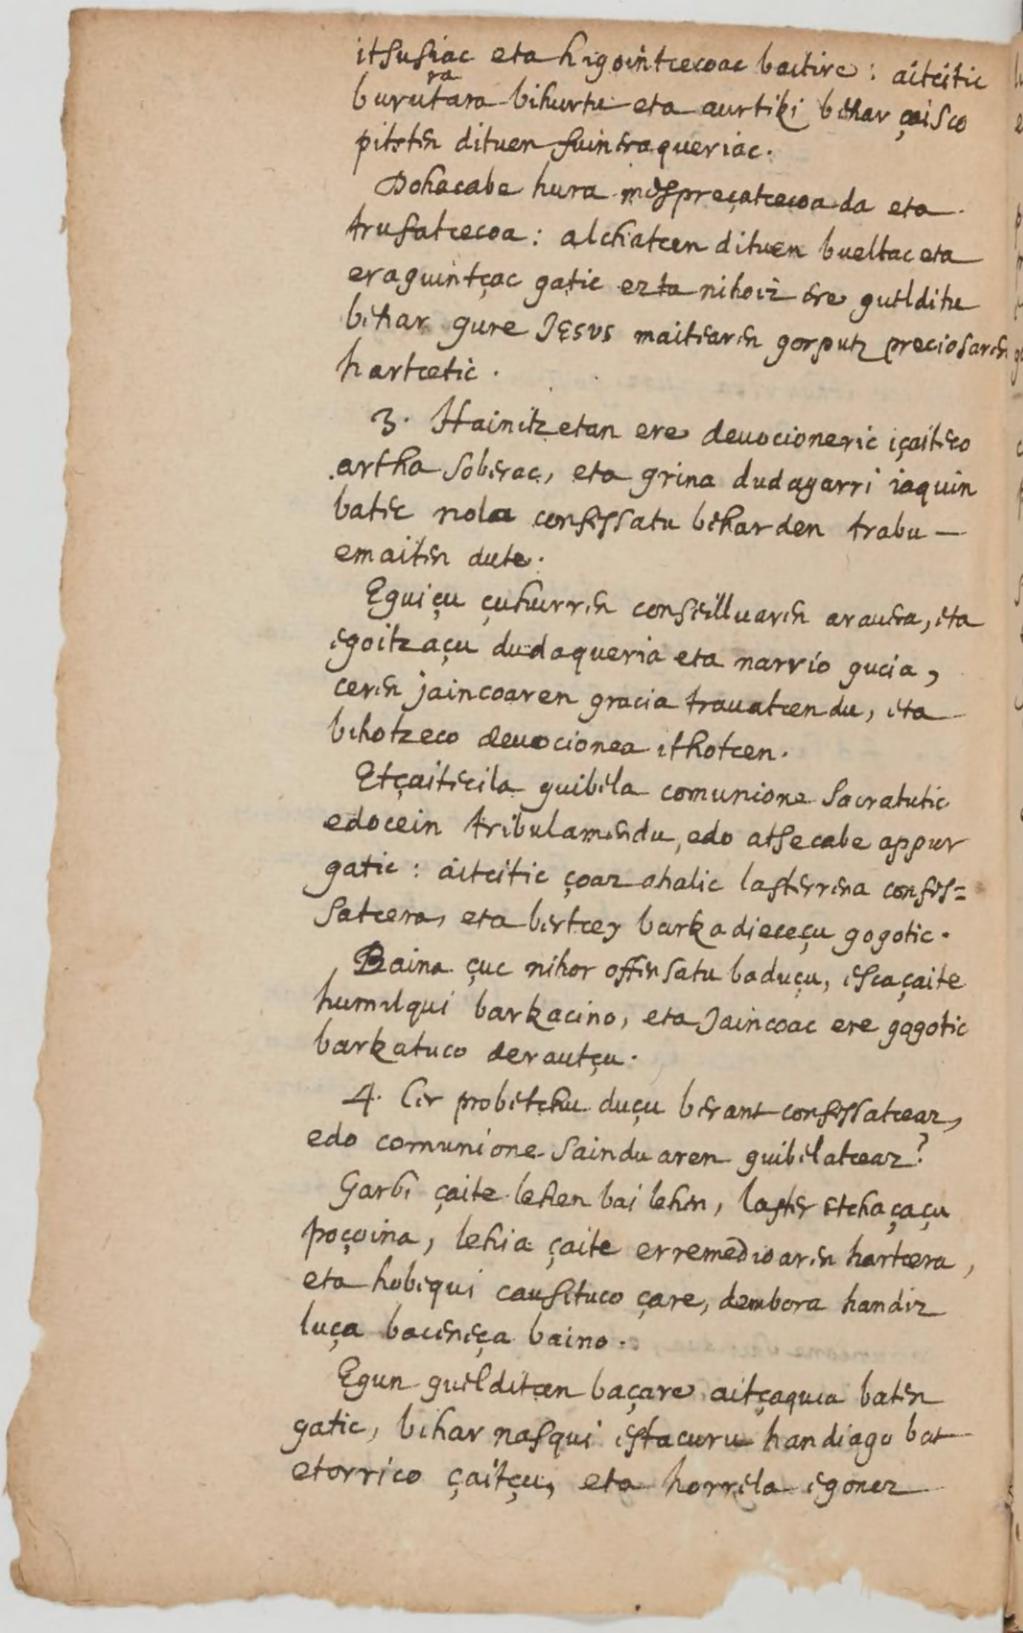 itsusiac eta higointcecoac baitire: aitcitic
burutara bihurtu eta aurtiki behar çaisco
pitzten dituen suintaqueriac.
Dohacabe hura mespreçatcecoa da eta
trufatcecoa: alchatcen dituen bueltac eta
eraguintçac gatic ezta nihoiz ere guelditu
behar gure JESUS maitearen gorputz preciosaren
hartcetic.
3. Hainitzetan ere deuocioneric içaiteco
artha soberac, eta grina dudagarri iaquin
batec nola confessatu behar den trabu
emaiten dute.
Eguiçu çuhurren conseilluaren arauera, eta
egoitzaçu dudaqueria eta narrio gucia,
ceren jaincoaren gracia trauatcen du, eta
bihotzeco deuocionea ithotcen.
Etçaitecela guibela comunione Sacratutic
edocein tribulamendu, edo atsecabe appur
gatic: aitcitic çoaz ahalic lasterrena confes=
satcera, eta bertcey barka dieceçu gogotic.
Baina çuc nihor offensatu baduçu, esca çaite
humilqui barkacino, eta Jaincoac ere gogotic
barkatuco derautçu.
4. Cer probetchu duçu berant confessatceaz,
edo comunione Sainduaren guibelatceaz?
Garbi çaite lehen bai lehen, laster etchaçaçu
poçoina, lehia çaite erremedioaren hartcera,
eta hobequi causituco çare, dembora handiz
luça baceneça baino.
Egun guelditcen baçare aitçaquia baten
gatic, bihar nasqui estacuru handiago bat
etorrico çaitçu, eta horrela egonez